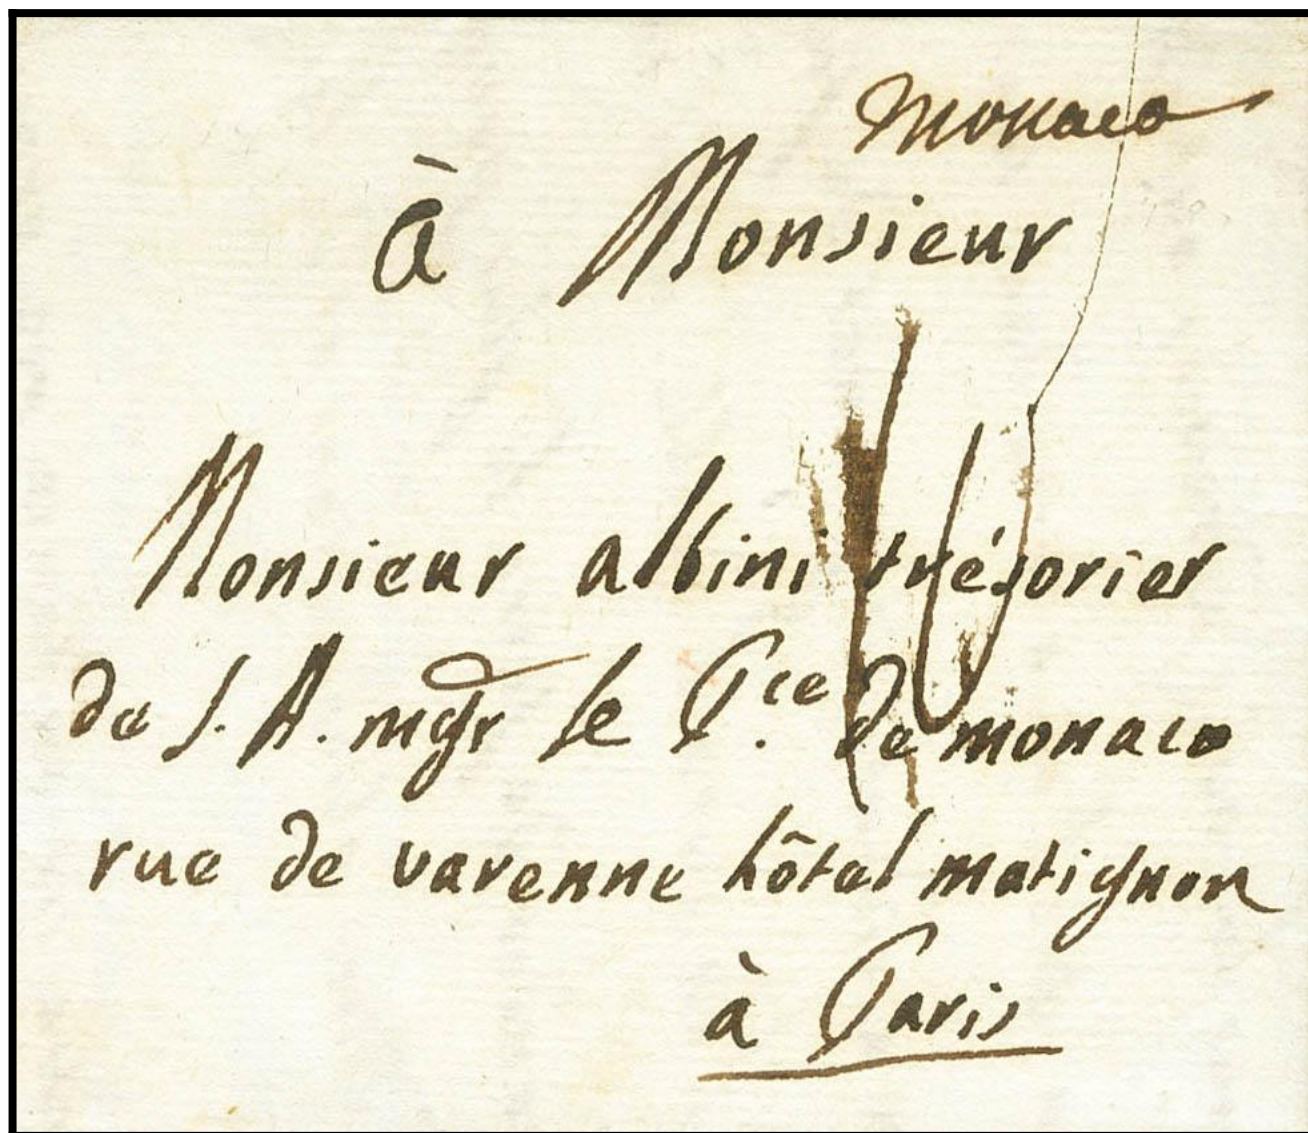 Monaco
à Monsieur
Monsieur albini trésorier
de S. A. mgr le Pce de monaco
rue de varenne hôtel matignon
à Paris